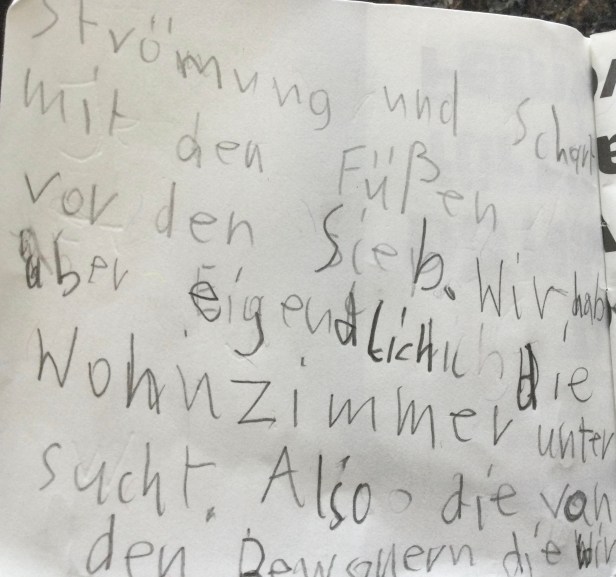 Strömung und Schar
mit den Füßen
vor den Sieb. Wir hab
aber eigendlich die
Wohnzimmer unter
sucht. Also die van
den Bewonern die wir